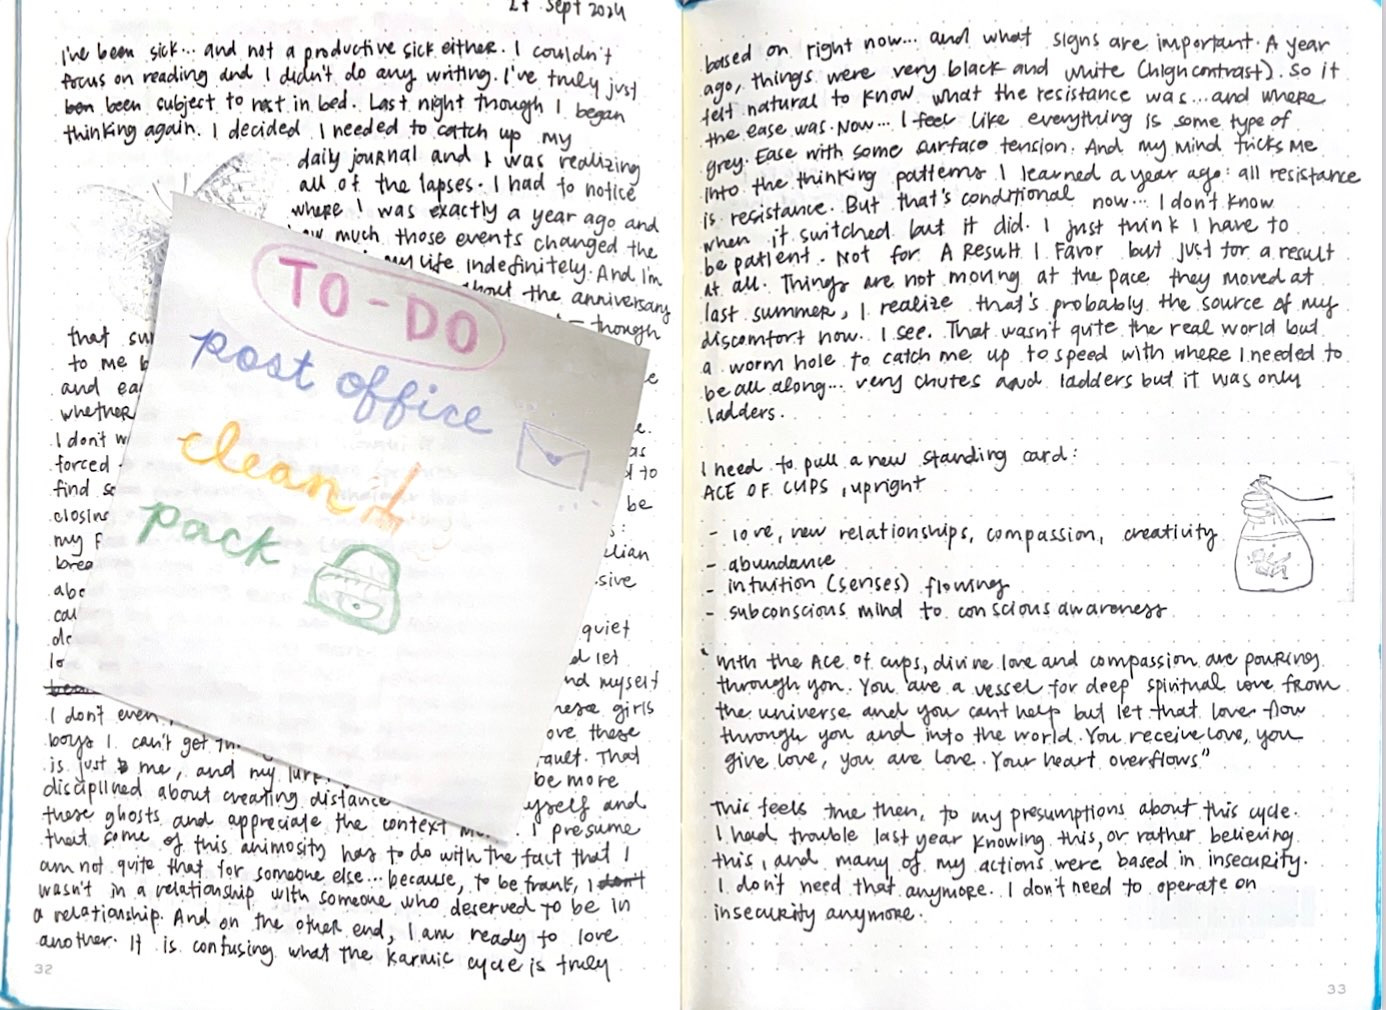 27 Sept 2024
I've been sick... and not a productive sick either. I couldn't
focus on reading and I didn't do any writing. I've truly just
been subject to rest in bed. Last night though I began
thinking again. I decided I needed to catch up my
daily journal and I was realizing
all of the lapses. I had to notice
where I was exactly a year ago and
how much those events changed the
my life indefinitely. And I'm
about the anniversary
though
that
to me
and
whether
I don't
forced
find
to
be
my
quiet
let
myself
I don't even
girls
boys I can't get
these
is just me, and my
fault. That
be more
disciplined about creating distance
myself and
these ghosts and appreciate the context
I presume
that some of this animosity has to do with the fact that I
am not quite that for someone else... because, to be frank, I don't
wasn't in a relationship with someone who deserved to be in
a relationship. And on the other end, I am ready to love
another. It is confusing what the karmic cycle is truly
32
TO-DO
post office
clean
pack
based on right now... and what signs are important. A year
ago, things were very black and white (high contrast). So it
felt natural to know what the resistance was... and where
the ease was. Now... I feel like everything is some type of
grey. Ease with some surface tension. And my mind tricks me
into the thinking patterns I learned a year ago: all resistance
is resistance. But that's conditional now... I don't know
when it switched but it did. I just think I have to
be patient. Not for A Result I Favor but just for a result
at all. Things are not moving at the pace they moved at
last summer, I realize that's probably the source of my
discomfort now. I see. That wasn't quite the real world but
a worm hole to catch me up to speed with where I needed to
be all along... very chutes and ladders but it was only
ladders.
I need to pull a new standing card:
ACE OF CUPS, upright
- love, new relationships, compassion, creativity
- abundance
- intuition (senses) flowing
- subconscious mind to conscious awareness
"With the Ace of cups, divine love and compassion are pouring
through you. You are a vessel for deep spiritual love from
the universe and you can't help but let that love flow
through you and into the world. You receive love, you
give love, you are love. Your heart overflows"
This feels true then, to my presumptions about this cycle.
I had trouble last year knowing this, or rather believing
this, and many of my actions were based in insecurity.
I don't need that anymore. I don't need to operate on
insecurity anymore.
33